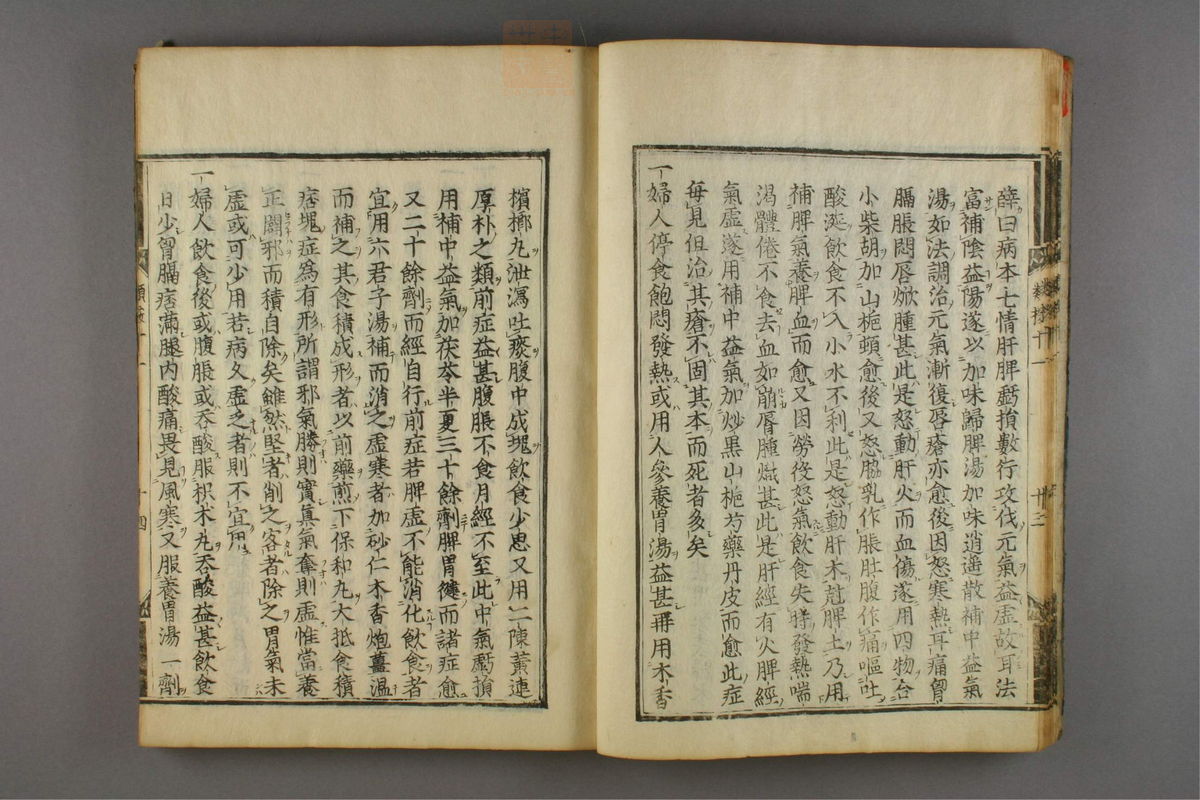 薛曰病本七情肝脾虧損數行攻伐元氣益虛故耳法
富補陰益陽遂以加味歸脾湯加味逍遙散補中益氣
湯如法調治元氣漸復唇瘡亦愈後因怒寒熱耳痛胷
膈脹悶唇焮腫甚此是怒動肝火而血傷遂用四物合
小柴胡加山梔頓愈後又怒脇乳作脹肚腹作痛嘔吐
酸涎飲食不入小水不利此是怒動肝木尅脾土乃用
補脾氣養脾血而愈又因勞役怒氣飲食失時發熱喘
渴體倦不食去血如崩唇腫熾甚此是肝經有火脾經
氣虛遂用補中益氣加炒黑山梔芍藥丹皮而愈此症
每見但治其瘡不固其本而死者多矣
一婦人停食飽悶發熱或用人參養胃湯益甚再用木香
檳榔丸泄瀉吐痰腹中成塊飲食少思又用二陳黃連
厚朴之類前症益甚腹脹不食月經不至此中氣虧損
用補中益氣加茯苓半夏三十餘劑脾胃健而諸症愈
又二十餘劑而經自行前症若脾虛不能消化飲食者
宜用六君子湯補而消之虛寒者加砂仁木香炮薑温
而補之其食積成形者以前藥煎下保和丸大抵食積
痞塊症為有形所謂邪氣勝則實真氣奪則虛惟當養
正闢邪而積自除矣雖然堅者削之客者除之胃氣未
虛或可少用若病久虛乏者則不宜用
一婦人飲食後或腹脹或吞酸服枳术丸吞酸益甚飲食
日少胷膈痞滿腿内酸痛畏見風寒又服養胃湯一劑